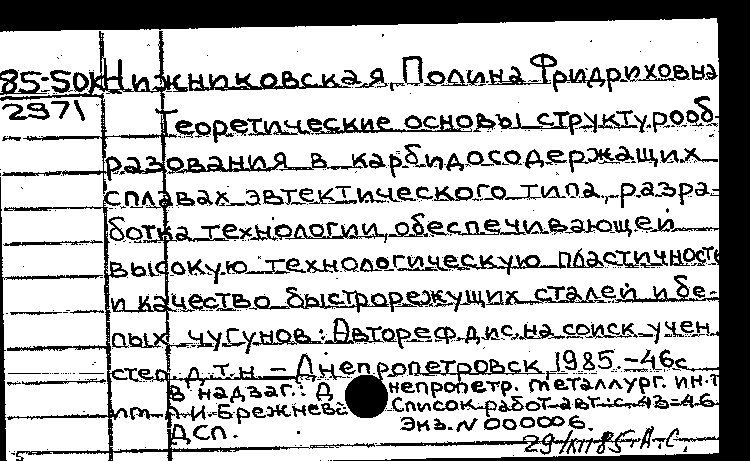 85-50к Нижниковская, Полина Фридриховна
2971
Теоретические основы структурооб-
разования в карбидосодержащих
сплавах эвтектического типа, разра-
ботка технологии, обеспечивающей
высокую технологическую пластичность
и качество быстрорежущих сталей и бе-
лых чугунов: Автореф. дис. на соиск. учен.
степ. д. т. н. - Днепропетровск, 1985. - 46с
В надзаг.: Днепропетр. металлург. ин-т
им. Л. И. Брежнева Список работ авт.: с. 43-46
ДСП. Экз. N 000006.
29/XII 85. А. С.